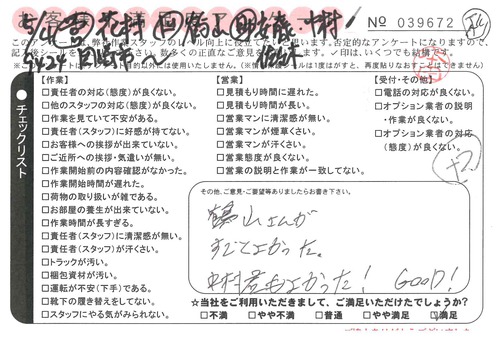 No 039672
このアンケートは、弊社作業スタッフのレベル向上に役立てたいと思います。否定的なアンケートになりますが、
数多くの真直なご意見をお
【作業】
□責任者の対応(態度)が良くない。
□他のスタッフの対応(態度)が良くない。
□作業を見ていて不安がある。
□責任者(スタッフ)に好感が持てない。
□お客様への挨拶が出来ていない。
□ご近所への挨拶・気遣いが無い。
□作業開始前の内容確認がなかった。
□作業開始時間が遅れた。
□荷物の取り扱いが雑である。
□お部屋の養生が出来ていない。
□作業時間が長すぎる。
□責任者(スタッフ)に清潔感が無い。
□責任者(スタッフ)が汗くさい。
□トラックが汚い。
□梱包資材が汚い。
□運転が不安(下手)である。
□靴下の履き替えをしてくれない。
□スタッフにやる気がみられない。
【営業】
□見積もり時間に遅れた。
□見積もり時間が長い。
□営業マンに清潔感が無い。
□営業マンが煙草くさい。
□営業マンが汗くさい。
□営業態度が良くない。
□営業の説明と作業が一致してない。
【受付・その他】
□電話の対応が良くない。
□オプション業者の説明
・作業が良くない。
□オプション業者の対応
(態度)が良くない。
●チェックリスト
その他、ご意見・ご要望等ありましたらお書き下さい。
鶴山さんが
すごくよかった。
中村君もよかった! GOOD!
☆当社をご利用いただきまして、ご満足いただけたでしょうか?
□不満 □やや不満 □普通 □やや満足 □満足